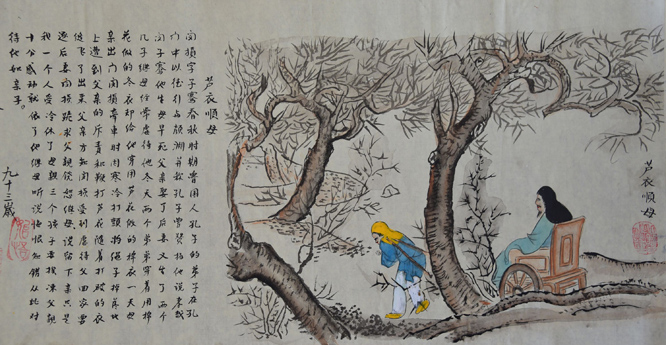 芦衣顺母
芦衣顺母
闵损字子骞春秋时期鲁国人孔子的弟子在孔
门中以德行与颜渊并称孔子曾赞扬他说孝哉
闵子骞他生母早死父亲娶了后妻又生了两个
儿子继母经常虐待他冬天两个弟弟穿着用棉
花做的冬衣却给他穿用芦花做的棉衣一天父
亲出门闵损牵车时因寒冷打颤将绳子掉落地
上遭到父亲的斥责和鞭打芦花随着打破的衣
缝飞了出来父亲方知闵损受到虐待父回家要
逐后妻闵损跪求父亲饶恕继母说留下母只是
我一个人受冷休了母亲三个孩子要挨冻父亲
十分感动就依了他继母听说悔恨知错从此对
待他如亲子。
九十三岁